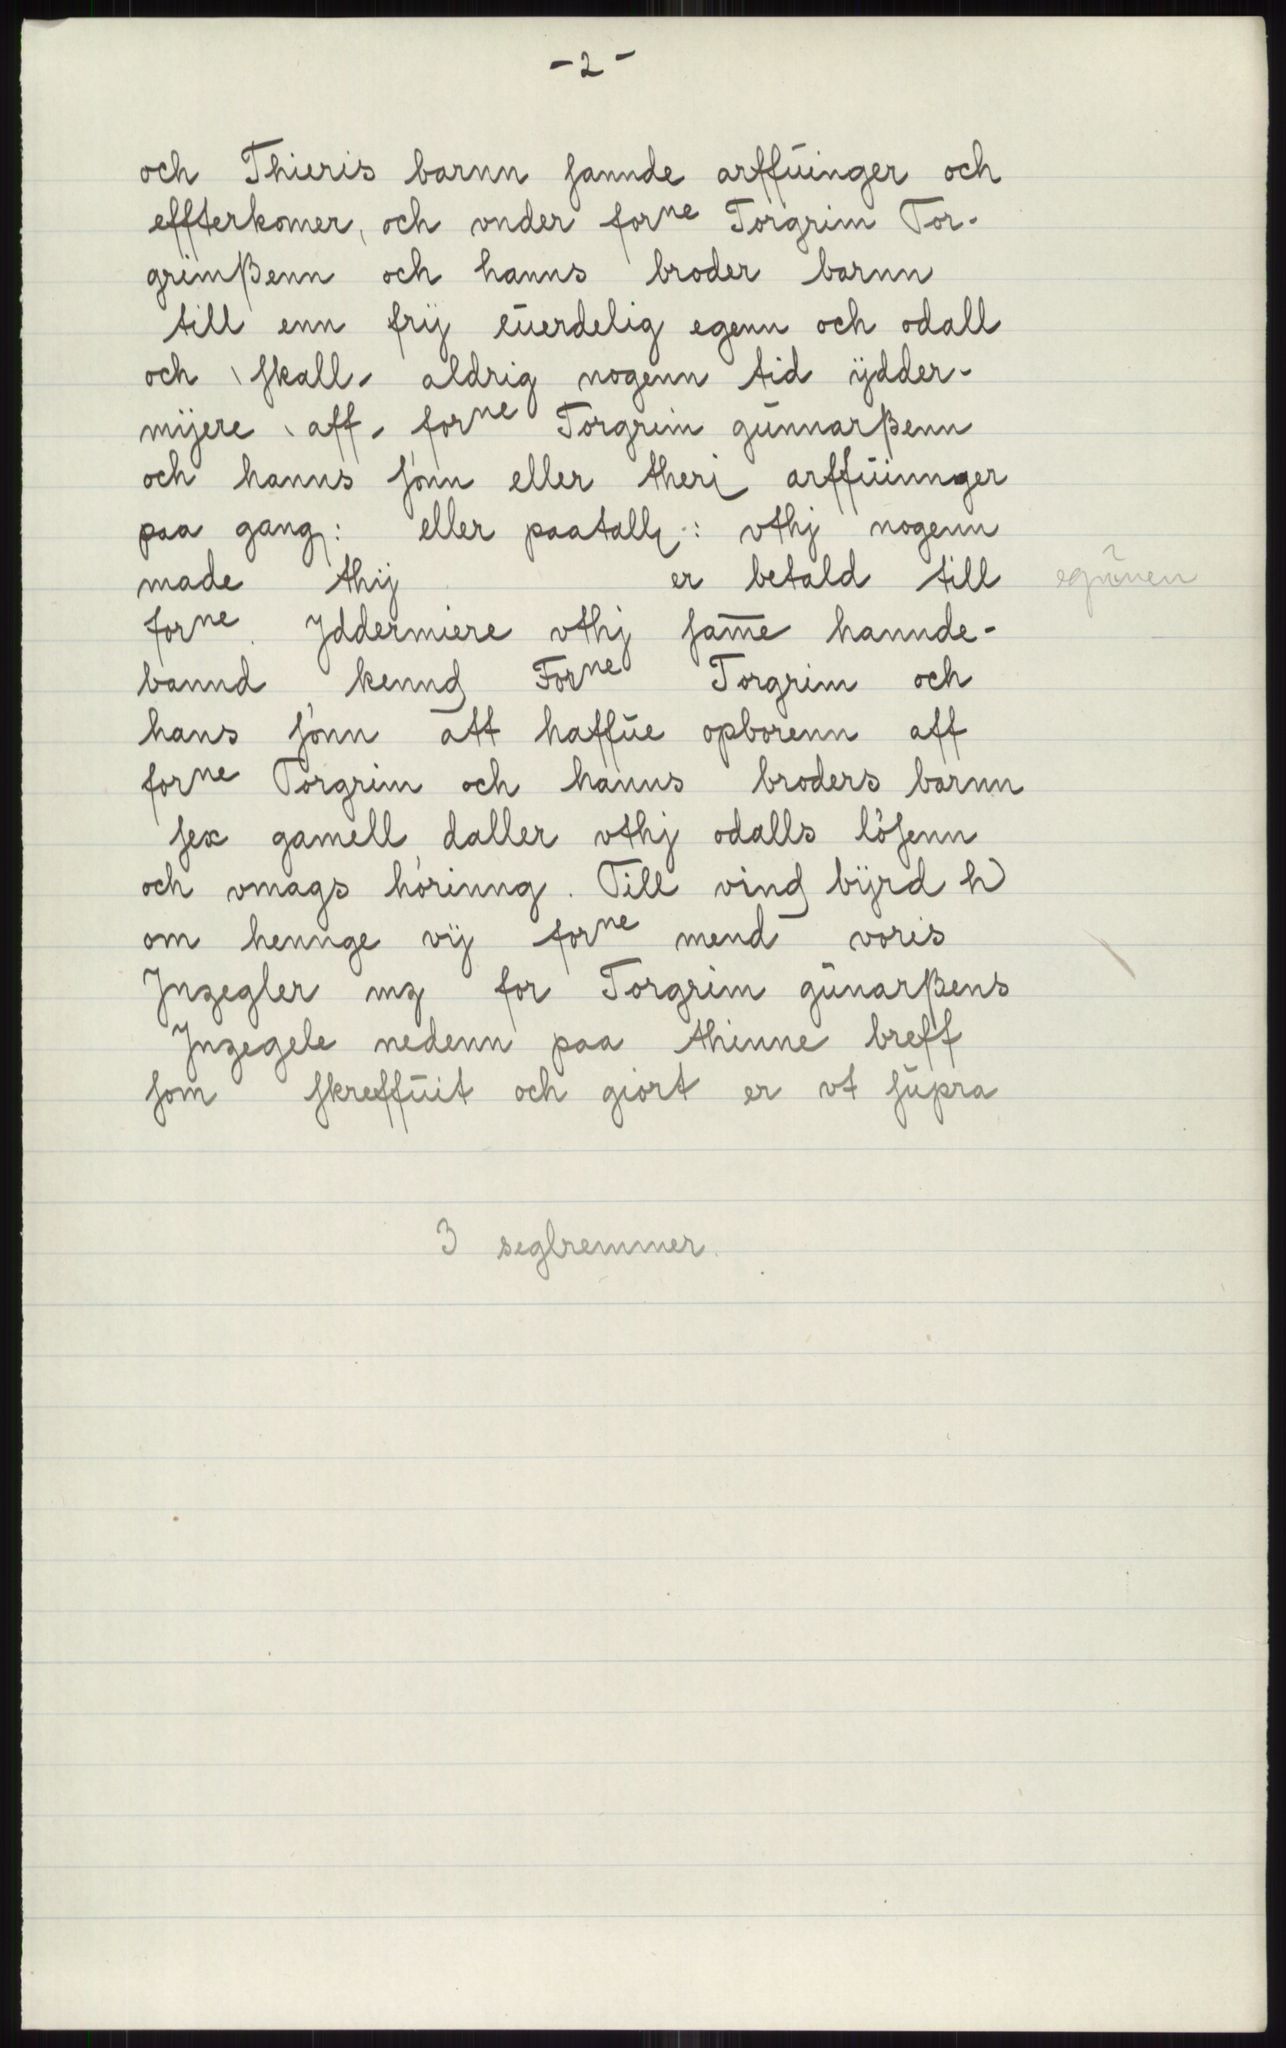 - 2 -
och Thieris barnn sannde arffŭinger och
effterkomer, och vnder forne Torgrim Tor-
grimßenn och hanns broder barnn
till enn frij eŭerdelig egenn och odall
och skall aldrig nogenn tid ÿdder-
mijere aff forne Torgrim gŭnnarßenn
och hanns sónn eller theri arffŭinnger
paa gang: eller paatall: vthj nogenn
made thij er betald till
forne. Jddermiere vthj sam̅e hannde-
bannd kennd Forne Torgrim och
hans sónn att haffŭe opborenn aff
forne Torgrim och hanns broders barnn
sex gamell daller vthj odalls lósenn
och vmags hórinng. Till vind bÿrd h
om hennge vij forne mend voris
Jnzegler mz for Torgrim gŭnarßens
Jnzegele nedenn paa thenne breff
som skreffŭit och giort er vt sŭpra
3 seglremmer.